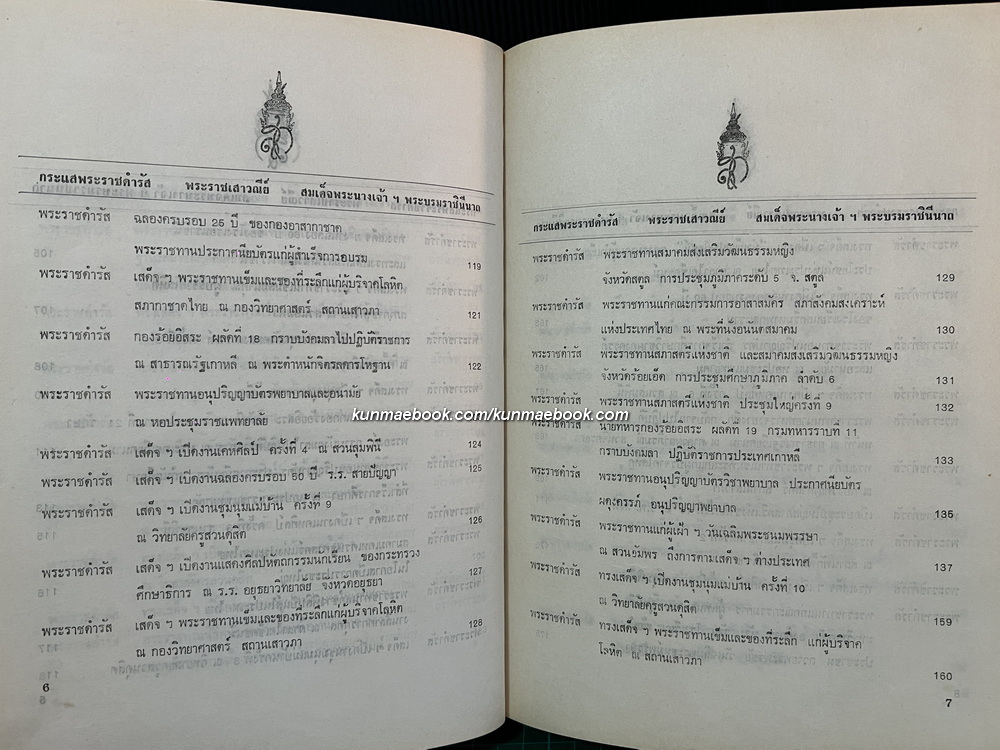 กระแสพระราชดำรัส พระราชเสาวณีย์ สมเด็จพระนางเจ้า ฯ พระบรมราชินีนาถ
พระราชดำรัส ฉลองครบรอบ 25 ปี ของกองอาสากาชาด
พระราชทานประกาศนียบัตรแก่ผู้สำเร็จการอบรม 119
พระราชดำรัส เสด็จ ฯ พระราชทานเข็มและของที่ระลึกแก่ผู้บริจาคโลหิต
สภากาชาดไทย ณ กองวิทยาศาสตร์ สถานเสาวภา 121
พระราชดำรัส กองร้อยอิสระ ผลัดที่ 18 กราบบังคมลาไปปฏิบัติราชการ
ณ สาธารณรัฐเกาหลี ณ พระตำหนักจิตรลดารโหฐาน 122
พระราชดำรัส พระราชทานอนุปริญญาบัตรพยาบาลและอนามัย
ณ หอประชุมราชแพทยาลัย 124
พระราชดำรัส เสด็จ ฯ เปิดงานเคหศิลป์ ครั้งที่ 4 ณ สวนลุมพินี 125
พระราชดำรัส เสด็จ ฯ เปิดงานฉลองครบรอบ 50 ปี ร.ร. สายปัญญา
พระราชดำรัส เสด็จ ฯ เปิดงานชุมนุมแม่บ้าน ครั้งที่ 9
ณ วิทยาลัยครูสวนดุสิต 126
พระราชดำรัส เสด็จ ฯ เปิดงานแสดงศิลปหัตถกรรมนักเรียน ของกระทรวง
ศึกษาธิการ ณ ร.ร. อยุธยาวิทยาลัย จังหวัดอยุธยา 127
พระราชดำรัส เสด็จ ฯ พระราชทานเข็มและของที่ระลึกแก่ผู้บริจาคโลหิต
ณ กองวิทยาศาสตร์ สถานเสาวภา 128
6
กระแสพระราชดำรัส พระราชเสาวณีย์ สมเด็จพระนางเจ้า ฯ พระบรมราชินีนาถ
พระราชดำรัส พระราชทานสมาคมส่งเสริมวัฒนธรรมหญิง
จังหวัดสตูล การประชุมภูมิภาคระดับ 5 จ. สตูล 129
พระราชดำรัส พระราชทานแก่คณะกรรมการอาสาสมัคร สภาสังคมสงเคราะห์
แห่งประเทศไทย ณ พระที่นั่งอนันตสมาคม 130
พระราชดำรัส พระราชทานสภาสตรีแห่งชาติ และสมาคมส่งเสริมวัฒนธรรมหญิง
จังหวัดร้อยเอ็ด การประชุมศึกษาภูมิภาค ลำดับ 6 131
พระราชดำรัส พระราชทานสภาสตรีแห่งชาติ ประชุมใหญ่ครั้งที่ 9 132
พระราชดำรัส นายทหารกองร้อยอิสระ ผลัดที่ 19 กรมทหารราบที่ 11
กราบบังคมลา ปฏิบัติราชการประเทศเกาหลี 133
พระราชดำรัส พระราชทานอนุปริญญาบัตรวิชาพยาบาล ประกาศนียบัตร
ผดุงครรภ์ อนุปริญญาพยาบาล 135
พระราชดำรัส พระราชทานแก่ผู้เฝ้า ฯ วันเฉลิมพระชนมพรรษา
ณ สวนอัมพร ถึงการตามเสด็จ ฯ ต่างประเทศ 137
พระราชดำรัส ทรงเสด็จ ฯ เปิดงานชุมนุมแม่บ้าน ครั้งที่ 10
ณ วิทยาลัยครูสวนดุสิต 159
พระราชดำรัส ทรงเสด็จ ฯ พระราชทานเข็มและของที่ระลึก แก่ผู้บริจาค
โลหิต ณ สถานเสาวภา 160
7
kunmaebook.com/kunmaebook.com